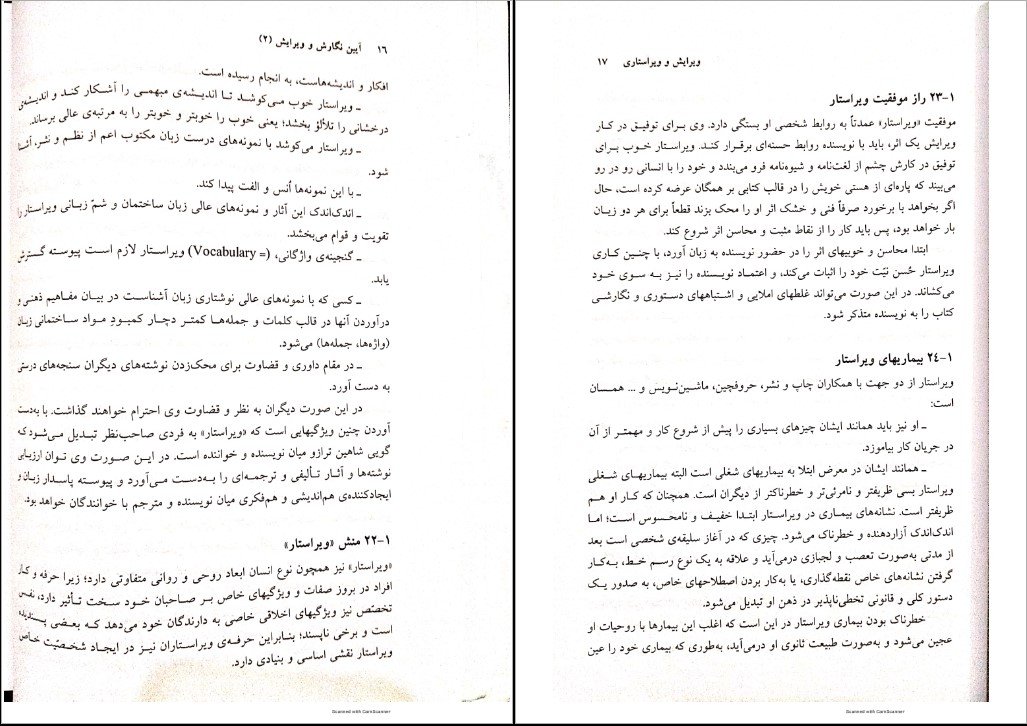 ۱۶ آیین نگارش و ویرایش (۲)
افکار و اندیشه‌هاست، به انجام رسیده است.
ـ ویراستار خوب می‌کوشد تا اندیشه‌ی مبهمی را آشکار کند و اندیشه‌ی
درخشانی را تلألؤ بخشد؛ یعنی خوب را خوبتر و خوبتر را به مرتبه‌ی عالی برساند.
ـ ویراستار می‌کوشد با نمونه‌های درست زبان مکتوب اعم از نظم و نثر، آشنا
شود.
ـ با این نمونه‌ها اُنس و الفت پیدا کند.
ـ اندک‌اندک این آثار و نمونه‌های عالی زبان ساختمان و شمّ زبانی ویراستار را
تقویت و قوام می‌بخشد.
ـ گنجینه‌ی واژگانی، (= Vocabulary) ویراستار لازم است پیوسته گسترش
یابد.
ـ کسی که با نمونه‌های عالی نوشتاری زبان آشناست در بیان مفاهیم ذهنی و
درآوردن آنها در قالب کلمات و جمله‌ها کمتر دچار کمبودِ مواد ساختمانی زبان
(واژه‌ها، جمله‌ها) می‌شود.
ـ در مقام داوری و قضاوت برای محک‌زدن نوشته‌های دیگران سنجه‌های درستی
به دست آورد.
در این صورت دیگران به نظر و قضاوت وی احترام خواهند گذاشت. با به‌دست
آوردن چنین ویژگیهایی است که «ویراستار» به فردی صاحب‌نظر تبدیل می‌شود که
گویی شاهین ترازو میان نویسنده و خواننده است. در این صورت وی توان ارزیابی
نوشته‌ها و آثار تألیفی و ترجمه‌ای را به‌دست می‌آورد و پیوسته پاسدار زبان و
ایجادکننده‌ی هم‌اندیشی و هم‌فکری میان نویسنده و مترجم با خوانندگان خواهد بود.
۱-۲۲ منش «ویراستار»
«ویراستار» نیز همچون نوع انسان ابعاد روحی و روانی متفاوتی دارد؛ زیرا حرفه و کار
افراد در بروز صفات و ویژگیهای خاص بر صاحبان خود سخت تأثیر دارد، نفس
تخصّص نیز ویژگیهای اخلاقی خاصی به دارندگان خود می‌دهد که بعضی پسندیده
است و برخی ناپسند؛ بنابراین حرفه‌ی ویراستاران نیز در ایجاد شخصیّت خاص
ویراستار نقشی اساسی و بنیادی دارد.
Scanned with CamScanner
ویرایش و ویراستاری ۱۷
۱-۲۳ راز موفقیت ویراستار
موفقیت «ویراستار» عمدتاً به روابط شخصی او بستگی دارد. وی برای توفیق در کار
ویرایش یک اثر، باید با نویسنده روابط حسنه‌ای برقرار کند. ویراستار خوب برای
توفیق در کارش چشم از لغت‌نامه و شیوه‌نامه فرو می‌بندد و خود را با انسانی رو در رو
می‌بیند که پاره‌ای از هستی خویش را در قالب کتابی بر همگان عرضه کرده است، حال
اگر بخواهد با برخورد صرفاً فنی و خشک اثر او را محک بزند قطعاً برای هر دو زیان
بار خواهد بود، پس باید کار را از نقاط مثبت و محاسن اثر شروع کند.
ابتدا محاسن و خوبیهای اثر را در حضور نویسنده به زبان آورد، با چنین کاری
ویراستار حُسن نیّت خود را اثبات می‌کند، و اعتماد نویسنده را نیز به سوی خود
می‌کشاند. در این صورت می‌تواند غلطهای املایی و اشتباههای دستوری و نگارشی
کتاب را به نویسنده متذکر شود.
۱-۲۴ بیماریهای ویراستار
ویراستار از دو جهت با همکاران چاپ و نشر، حروفچین، ماشین‌نویس و ... همسان
است:
ـ او نیز باید همانند ایشان چیزهای بسیاری را پیش از شروع کار و مهمتر از آن
در جریان کار بیاموزد.
ـ همانند ایشان در معرض ابتلا به بیماریهای شغلی است البته بیماریهای شغلی
ویراستار بسی ظریفتر و نامرئی‌تر و خطرناکتر از دیگران است. همچنان که کار او هم
ظریفتر است. نشانه‌های بیماری در ویراستار ابتدا خفیف و نامحسوس است؛ اما
اندک‌اندک آزاردهنده و خطرناک می‌شود. چیزی که در آغاز سلیقه‌ی شخصی است بعد
از مدتی به‌صورت تعصب و لجبازی درمی‌آید و علاقه به یک نوع رسم خط، به‌کار
گرفتن نشانه‌های خاص نقطه‌گذاری، یا به‌کار بردن اصطلاحهای خاص، به صدور یک
دستور کلی و قانونی تخطی‌ناپذیر در ذهن او تبدیل می‌شود.
خطرناک بودن بیماری ویراستار در این است که اغلب این بیمارها با روحیات او
عجین می‌شود و به‌صورت طبیعت ثانوی او درمی‌آید، به‌طوری که بیماری خود را عین
Scanned with CamScanner